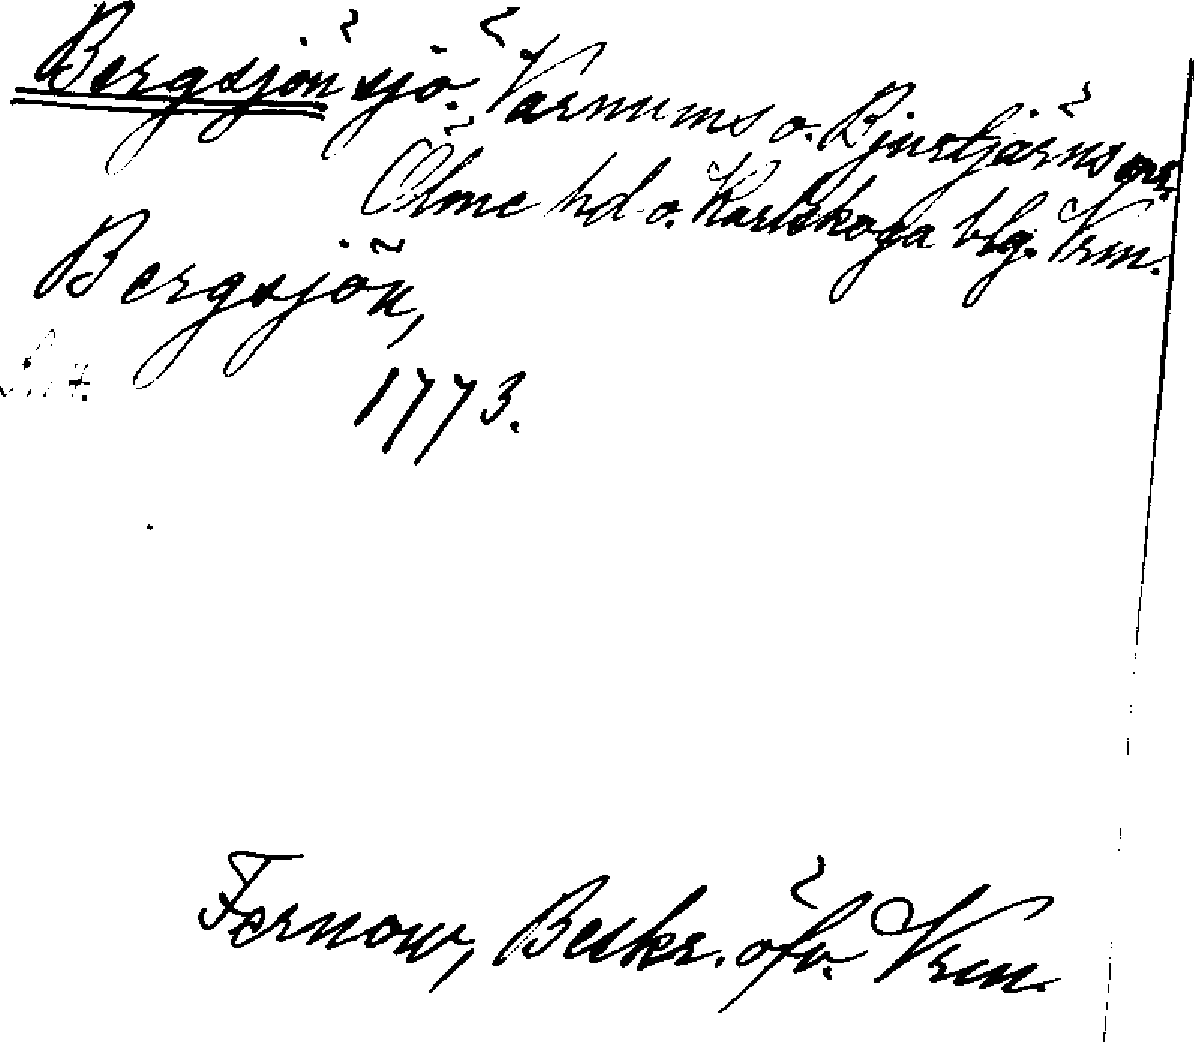 Bergsjön sjö. Varnums o. Bjurtjärns snr.
Ölme hd o. Karlskoga blg. Vrm.
Bergsjön,
1773.
Fernow, Beskr. öfv. Vrm.